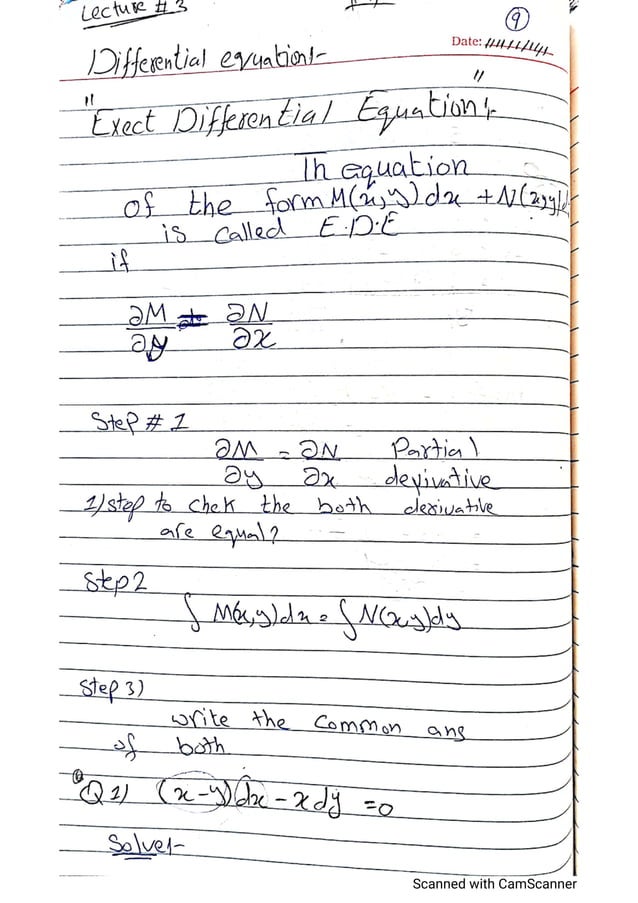 Lecture # 3
9
Date:
Differential equation:-
"Exect Differential Equation":-
Th equation
of the form M(x,y)dx + N(x,y)d
is called E.D.E
if
∂M/∂y = ∂N/∂x
Step # 1
∂M/∂y = ∂N/∂x Partial derivative
1) step to chek the both derivative
are equal?
Step 2
∫ M(x,y)dx = ∫ N(x,y)dy
Step 3)
write the common ans
of both
Q 1) (x-y)dx - xdy = 0
Solve:-
Scanned with CamScanner